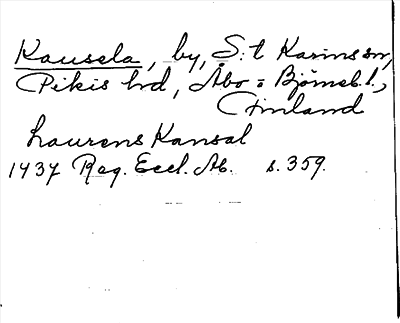 Kausela, by, S:t Karins sn,
Pikis hd, Åbo = Björneb. l.,
Finland
Laurens Kansal
1437 Reg. Eccl. Ab. s. 359.